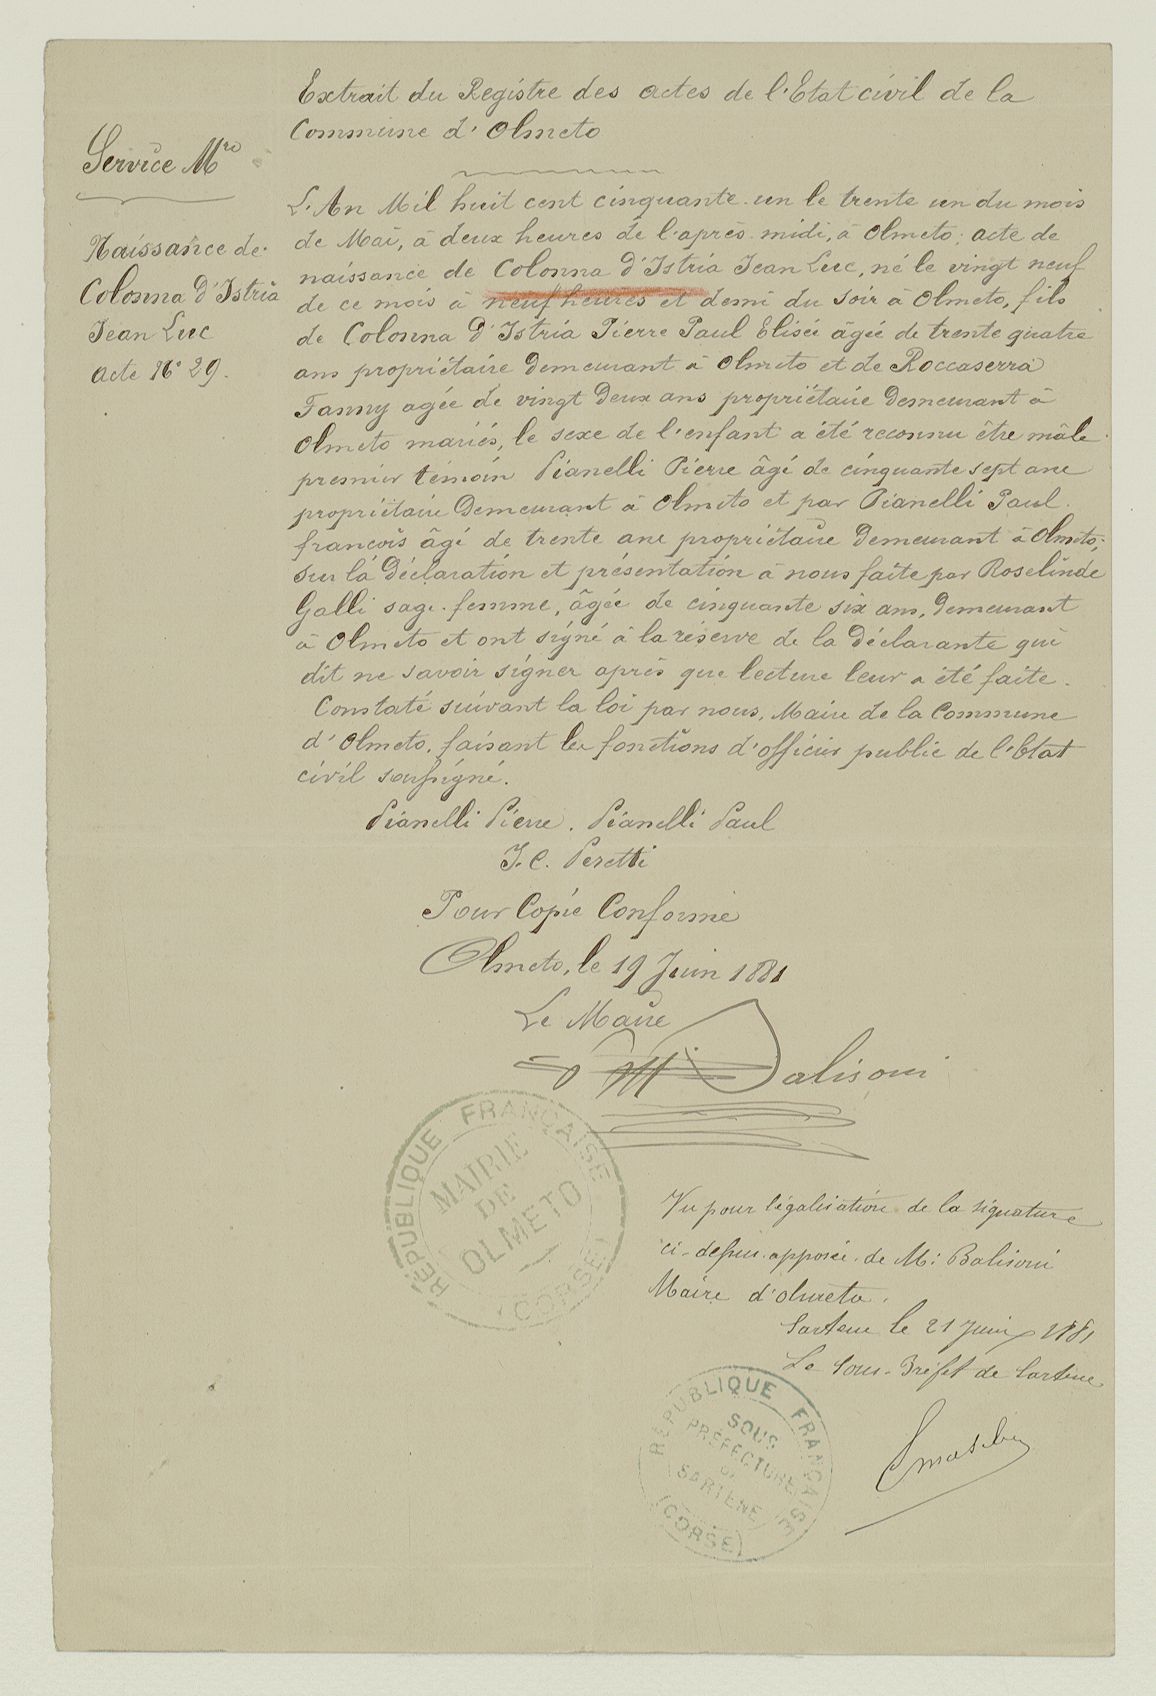 Extrait du Registre des actes de l'Etat civil de la
Commune d'Olmeto
Service Mre
Naissance de
Colonna d'Istria
Jean Luc
acte No 29.
L'An Mil huit cent cinquante-un le trente un du mois
de Mai, à deux heures de l'après-midi, à Olmeto; acte de
naissance de Colonna d'Istria Jean Luc, né le vingt neuf
de ce mois à neuf heures et demi du soir à Olmeto, fils
de Colonna d'Istria Pierre Paul Elisée âgée de trente quatre
ans propriétaire demeurant à Olmeto et de Roccaserra
Fanny agée de vingt deux ans propriétaire demeurant à
Olmeto mariés, le sexe de l'enfant a été reconnu être mâle
premier témoin Pianelli Pierre âgé de cinquante sept ans
propriétaire demeurant à Olmeto et par Pianelli Paul
françois âgé de trente ans propriétaire demeurant à Olmeto;
Sur la déclaration et présentation à nous faite par Roselinde
Galli sage-femme, âgée de cinquante six ans, demeurant
à Olmeto et ont signé à la réserve de la déclarante qui
dit ne savoir signer après que lecture leur a été faite.
Constaté suivant la loi par nous, Maire de la Commune
d'Olmeto, faisant les fonctions d'officier public de l'Etat
civil soussigné.
Pianelli Pierre. Pianelli Paul
J. C. Peretti
Pour Copie Conforme
Olmeto, le 19 Juin 1881
Le Maire
Balisoni
RÉPUBLIQUE FRANÇAISE
MAIRIE
DE
OLMETO
(CORSE)
Vu pour légalisation de la signature
ci-dessus apposée de M: Balisoni
Maire d'olmeto.
Sartene le 21 Juin 1881
Le Sous-Préfet de Sartène
RÉPUBLIQUE FRANÇAISE
SOUS
PRÉFECTURE
DE
SARTENE
(CORSE)